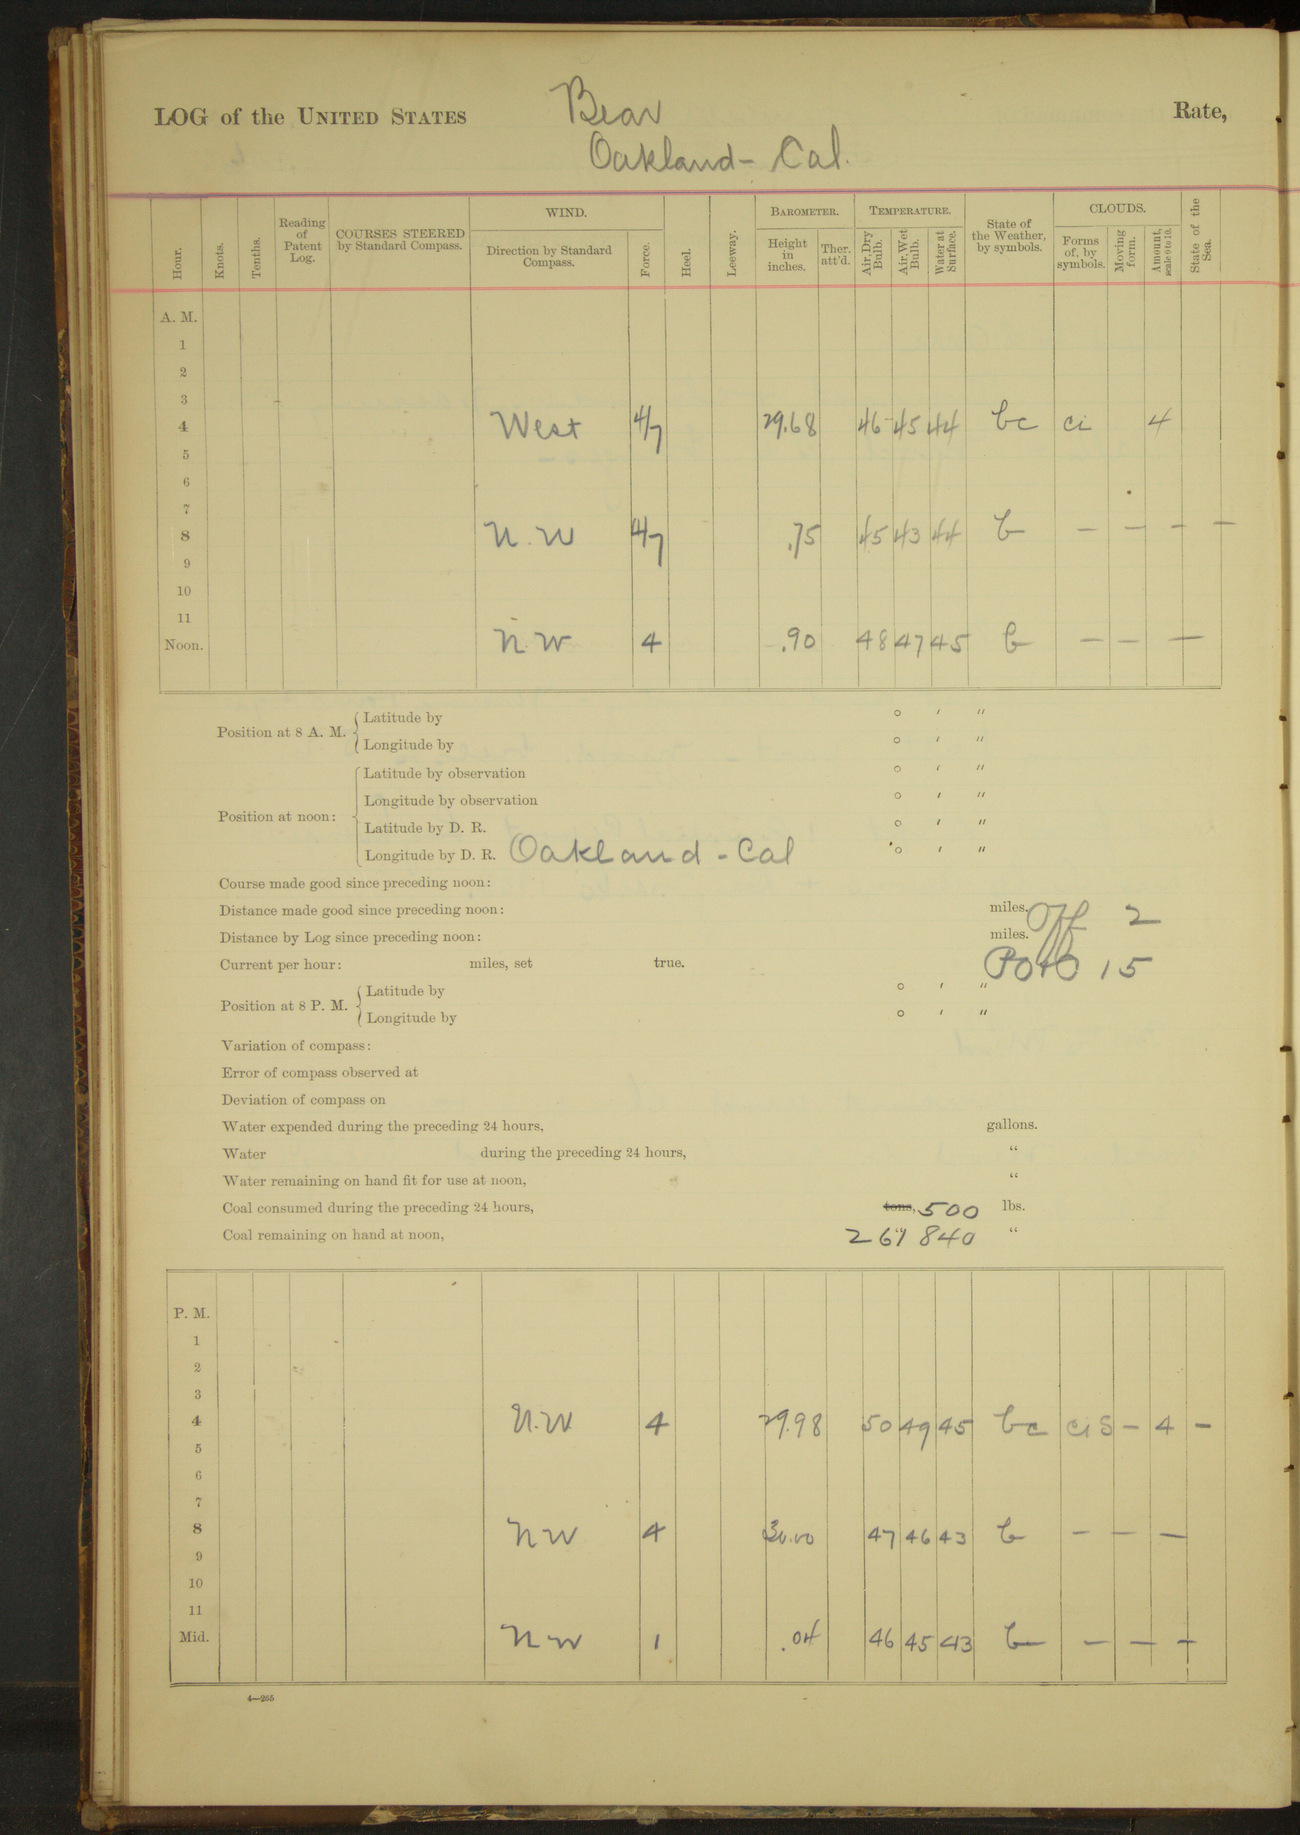 LOG of the UNITED STATES Bear Rate,
Oakland - Cal.
Hour. Knots. Tenths. Reading of Patent Log. COURSES STEERED by Standard Compass. WIND. Direction by Standard Compass. Force. Heel. Leeway. BAROMETER. Height in inches. Ther. att'd. TEMPERATURE. Air, Dry Bulb. Air, Wet Bulb. Water at Surface. State of the Weather, by symbols. CLOUDS. Forms of, by symbols. Moving form. Amount, scale 0 to 10. State of the Sea.
A. M.
1
2
3
4 West 4/7 29.68 46 45 44 bc ci 4
5
6
7
8 N.W 4/7 .75 45 43 44 b — — — —
9
10
11
Noon. N.W 4 .90 48 47 45 b — — —
Position at 8 A. M. Latitude by ° ′ ″
Longitude by ° ′ ″
Position at noon: Latitude by observation ° ′ ″
Longitude by observation ° ′ ″
Latitude by D. R. ° ′ ″
Longitude by D. R. Oakland - Cal ° ′ ″
Course made good since preceding noon:
Distance made good since preceding noon: miles. Off 2
Distance by Log since preceding noon: miles.
Current per hour: miles, set true. 15
Position at 8 P. M. Latitude by ° ′ ″
Longitude by ° ′ ″
Variation of compass:
Error of compass observed at
Deviation of compass on
Water expended during the preceding 24 hours, gallons.
Water during the preceding 24 hours, “
Water remaining on hand fit for use at noon, “
Coal consumed during the preceding 24 hours, tons, 500 lbs.
Coal remaining on hand at noon, 840 “
P. M.
1
2
3
4 N.W 4 29.98 50 49 45 bc ci s — 4 —
5
6
7
8 NW 4 30.00 47 46 43 b — — —
9
10
11
Mid. NW 1 .04 46 45 43 b — — —
4—265